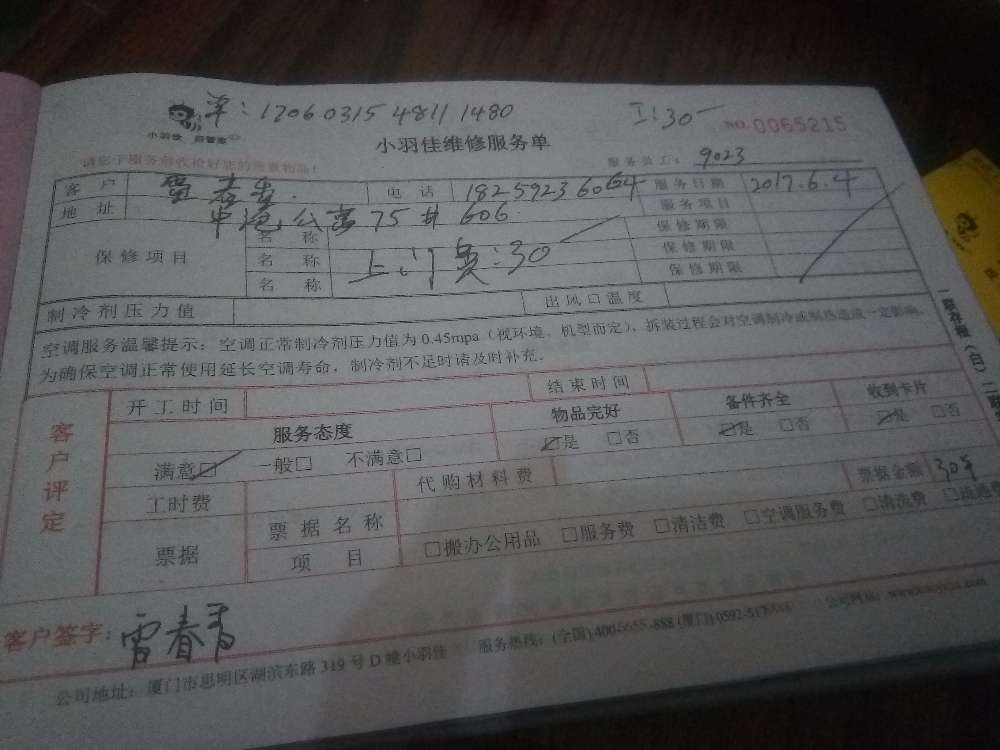 单:12060315 4811 1480 工:30
小羽佳 郎管家
小羽佳维修服务单 NO.0065215
请您于服务前收捡好您的贵重物品! 服务员工: 9023
客 户 雷春青 电 话 18259236064 服务日期 2017.6.4
地 址 公寓75# 606 服务项目
保修项目 名 称 保修期限
名 称 上门费:30 保修期限
名 称 保修期限
制冷剂压力值 出风口温度
空调服务温馨提示:空调正常制冷剂压力值为0.45mpa(视环境、机型而定),拆装过程会对空调制冷或制热造成一定影响。
为确保空调正常使用延长空调寿命,制冷剂不足时请及时补充。
一联存根(白)二联
客户评定
开工时间 结束时间
服务态度 物品完好 备件齐全 收到卡片
满意□ 一般□ 不满意□ □是 □否 □是 □否 □是 □否
工时费 代购材料费 票据金额 30
票据 票据名称
项 目 □搬办公用品 □服务费 □清洁费 □空调服务费 □清洗费
客户签字: 雷春青
公司地址:厦门市思明区湖滨东路319号D幢小羽佳 服务热线:(全国)400-6655-888 (厦门)0592-517 公司网站: